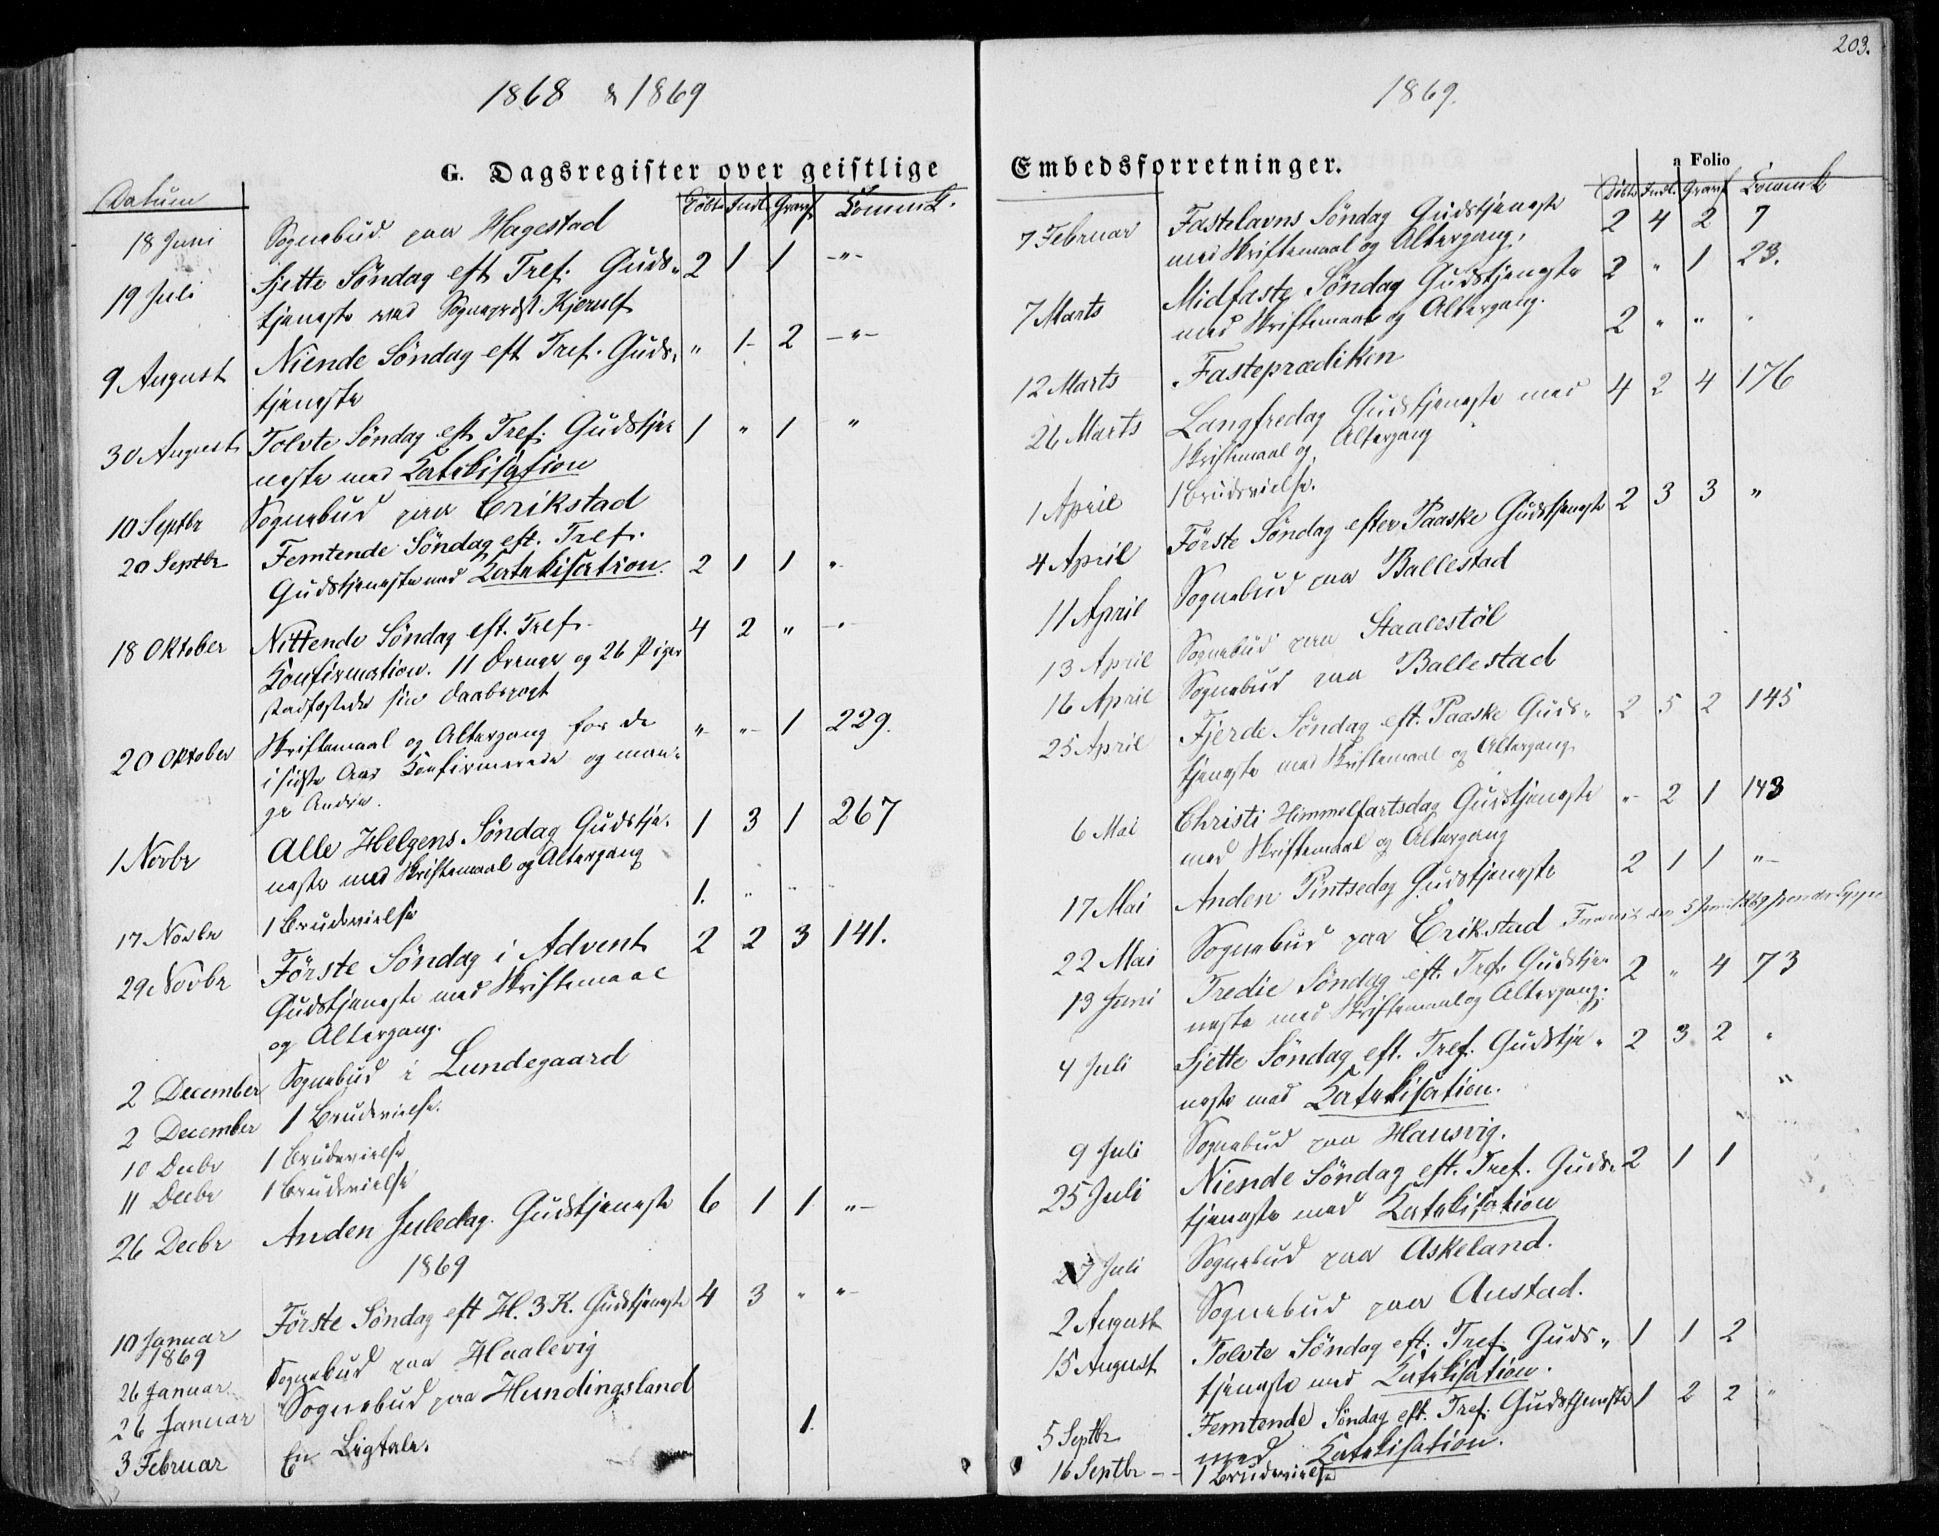 1868 & 1869
G. Dagsregister over geistlige
Datum Döbte Indl. Gravf. Commk.
18 Juni Sognebud paa Hagestad
19 Juli Sjette Söndag eft Tref. Guds- 2 1 1 -"-
tjeneste ved Sognepræst Kjerulf
9 August Niende Söndag eft Tref. Guds- " 1 2 -"-
tjeneste
30 August Tolvte Söndag eft Tref. Gudstje- 1 " 1 "
neste med Katekisation
10 Septbr Sognebud paa Erikstad
20 Septbr Femtende Söndag eft. Tref.
Gudstjeneste med Katekisation. 2 1 1 "
18 Oktober Nittende Söndag eft. Tref. 4 2 " -"
Konfirmation. 11 Drenge og 26 Piger
stadfæstede sin Daabspagt
20 Oktober Skriftemaal og Altergang for de "- "- 1 229.
i sidste Aar Konfirmerede og man-
ge Andre.
1 Novbr Alle Helgens Söndag Gudstje- 1 3 1 267
neste med Skriftemaal og Altergang
17 Novbr 1 Brudevielse 1. " " "
29 Novbr Förste Söndag i Advent 2 2 3 141.
Gudstjeneste med Skriftemaal
og Altergang.
2 December Sognebud i Lundegaard
2 December 1 Brudevielse.
10 Decbr 1 Brudevielse
11 Decbr 1 Brudevielse
26 Decbr Anden Juledag. Gudstjeneste 6 1 1 "-
1869
10 Januar Förste Söndag eft H. 3 K. Gudstjeneste 4 3 " "-
1869
26 Januar Sognebud paa Haalevig
26 Januar Sognebud paa Hundingsland
3 Februar En Ligtale. 1.
203.
1869.
Embedsforretninger.
a Folio
Döbte Indl. Gravf Commk
7 Februar Fastelavns Söndag Gudstjeneste 2 4 2 7
med Skriftemaal og Altergang.
7 Marts Midfaste Söndag Gudstjeneste 2 " 1 23.
med Skriftemaal og Altergang.
12 Marts Fasteprædiken 2 " " "
26 Marts Langfredag Gudstjeneste med 4 2 4 176
Skriftemaal og Altergang
1 April 1 Brudevielse.
4 April Förste Söndag efter Paaske Gudstjeneste 2 3 3 "
11 April Sognebud paa Ballestad
13 April Sognebud paa Staalestöl
16 April Sognebud paa Ballestad
25 April Fjerde Söndag eft. Paaske Guds- 2 5 2 145
tjeneste med Skriftemaal og Altergang.
6 Mai Christi Himmelfartsdag Gudstjeneste "- 2 1 143
med Skriftemaal og Altergang
17 Mai Anden Pintsedag Gudstjeneste 2 1 1 "-
22 Mai Sognebud paa Erikstad
13 Juni Tredie Söndag eft. Tref. Gudstje- 2 " 4 73
neste med Skriftemaal og Altergang.
4 Juli Sjette Söndag eft. Tref. Gudstje- 2 3 2 "
neste med Katekisation. "
9 Juli Sognebud paa Hausvig. "
25 Juli Niende Söndag eft. Tref. Guds- 2 1 1
tjeneste med Katekisation
27 Juli Sognebud paa Askeland.
2 August Sognebud paa Austad.
15 August Tolvte Söndag eft. Tref. Guds- 1 1 2
tjeneste med Katekisation.
5 Septbr Femtende Söndag eft. Tref. Gudstjeneste 1 2 2 "
med Katekisation.
16 Septbr - - 1 Brudevielse